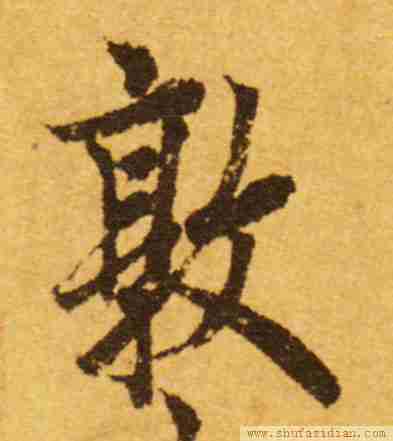 敦
www.shufazidian.com